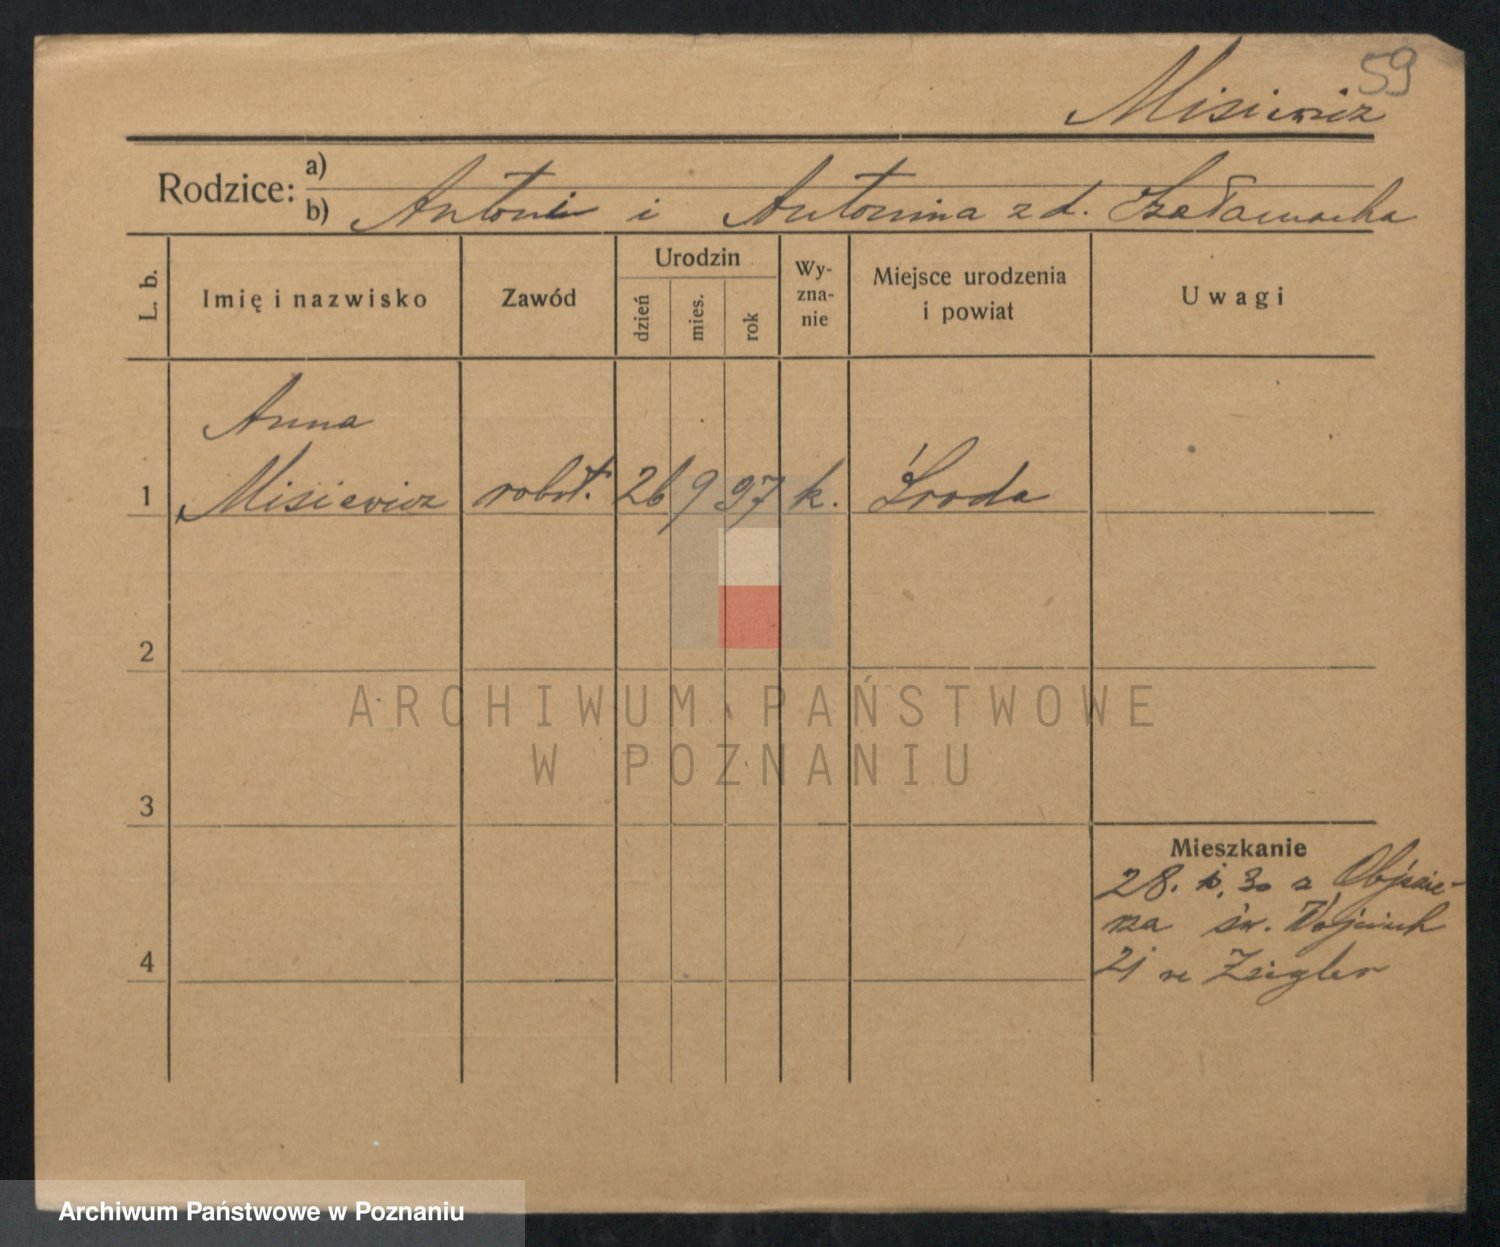 59
Misiewicz
Rodzice: a)
b) Antoni i Antonina z d.
L. b.
Imię i nazwisko
Zawód
Urodzin
dzień
mies.
rok
Wy-
zna-
nie
Miejsce urodzenia
i powiat
Uwagi
Anna
1 Misiewicz robot. 26 9 97 k. Środa
2
3
4
Mieszkanie
28. 30 z
św. Wojciech
21 Ziegler
ARCHIWUM PAŃSTWOWE
W POZNANIU
Archiwum Państwowe w Poznaniu